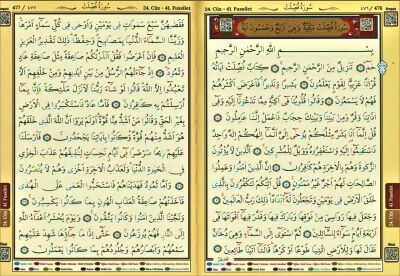 ٤٧٦ / 476
سُورَةُ فُصِّلَتْ
24. Cüz - 41. Fussilet
سُورَةُ فُصِّلَتْ مَكِّيَّةٌ وَهِيَ اَرْبَعٌ وَخَمْسُونَ اٰيَةً
بِسْمِ اللّٰهِ الرَّحْمٰنِ الرَّحِيمِ
حٰمٓ تَنْزِيلٌ مِنَ الرَّحْمٰنِ الرَّحِيمِ كِتَابٌ فُصِّلَتْ اٰيَاتُهُ
قُرْاٰنًا عَرَبِيًّا لِقَوْمٍ يَعْلَمُونَ بَشِيرًا وَنَذِيرًا فَاَعْرَضَ اَكْثَرُهُمْ
فَهُمْ لَا يَسْمَعُونَ وَقَالُوا قُلُوبُنَا فِي اَكِنَّةٍ مِمَّا تَدْعُونَا اِلَيْهِ وَفِي
اٰذَانِنَا وَقْرٌ وَمِنْ بَيْنِنَا وَبَيْنِكَ حِجَابٌ فَاعْمَلْ اِنَّنَا عَامِلُونَ
قُلْ اِنَّمَا اَنَا بَشَرٌ مِثْلُكُمْ يُوحٰى اِلَيَّ اَنَّمَا اِلٰهُكُمْ اِلٰهٌ وَاحِدٌ
فَاسْتَقِيمُوا اِلَيْهِ وَاسْتَغْفِرُوهُ وَوَيْلٌ لِلْمُشْرِكِينَ اَلَّذِينَ لَا يُؤْتُونَ
الزَّكٰوةَ وَهُمْ بِالْاٰخِرَةِ هُمْ كَافِرُونَ اِنَّ الَّذِينَ اٰمَنُوا وَعَمِلُوا
الصَّالِحَاتِ لَهُمْ اَجْرٌ غَيْرُ مَمْنُونٍ قُلْ اَئِنَّكُمْ لَتَكْفُرُونَ بِالَّذِي
خَلَقَ الْاَرْضَ فِي يَوْمَيْنِ وَتَجْعَلُونَ لَهُ اَنْدَادًا ذٰلِكَ رَبُّ الْعَالَمِينَ
وَجَعَلَ فِيهَا رَوَاسِيَ مِنْ فَوْقِهَا وَبَارَكَ فِيهَا وَقَدَّرَ فِيهَا اَقْوَاتَهَا فِي
اَرْبَعَةِ اَيَّامٍ سَوَاءً لِلسَّائِلِينَ ثُمَّ اسْتَوٰى اِلَى السَّمَاءِ وَهِيَ دُخَانٌ
فَقَالَ لَهَا وَلِلْاَرْضِ ائْتِيَا طَوْعًا اَوْ كَرْهًا قَالَتَا اَتَيْنَا طَائِعِينَ
24. Cüz - 41. Fussilet
سُورَةُ فُصِّلَتْ
477 / ٤٧٧
فَقَضٰيهُنَّ سَبْعَ سَمٰوَاتٍ فِي يَوْمَيْنِ وَاَوْحٰى فِي كُلِّ سَمَاءٍ اَمْرَهَا
وَزَيَّنَّا السَّمَاءَ الدُّنْيَا بِمَصَابِيحَ وَحِفْظًا ذٰلِكَ تَقْدِيرُ الْعَزِيزِ
الْعَلِيمِ فَاِنْ اَعْرَضُوا فَقُلْ اَنْذَرْتُكُمْ صَاعِقَةً مِثْلَ صَاعِقَةِ عَادٍ
وَثَمُودَ اِذْ جَاءَتْهُمُ الرُّسُلُ مِنْ بَيْنِ اَيْدِيهِمْ وَمِنْ خَلْفِهِمْ اَلَّا
تَعْبُدُوا اِلَّا اللّٰهَ قَالُوا لَوْ شَاءَ رَبُّنَا لَاَنْزَلَ مَلٰئِكَةً فَاِنَّا بِمَا
اُرْسِلْتُمْ بِهِ كَافِرُونَ فَاَمَّا عَادٌ فَاسْتَكْبَرُوا فِي الْاَرْضِ
بِغَيْرِ الْحَقِّ وَقَالُوا مَنْ اَشَدُّ مِنَّا قُوَّةً اَوَلَمْ يَرَوْا اَنَّ اللّٰهَ الَّذِي خَلَقَهُمْ
هُوَ اَشَدُّ مِنْهُمْ قُوَّةً وَكَانُوا بِاٰيَاتِنَا يَجْحَدُونَ فَاَرْسَلْنَا
عَلَيْهِمْ رِيحًا صَرْصَرًا فِي اَيَّامٍ نَحِسَاتٍ لِنُذِيقَهُمْ عَذَابَ الْخِزْيِ
فِي الْحَيٰوةِ الدُّنْيَا وَلَعَذَابُ الْاٰخِرَةِ اَخْزٰى وَهُمْ لَا يُنْصَرُونَ
وَاَمَّا ثَمُودُ فَهَدَيْنَاهُمْ فَاسْتَحَبُّوا الْعَمٰى عَلَى الْهُدٰى
فَاَخَذَتْهُمْ صَاعِقَةُ الْعَذَابِ الْهُونِ بِمَا كَانُوا يَكْسِبُونَ
وَنَجَّيْنَا الَّذِينَ اٰمَنُوا وَكَانُوا يَتَّقُونَ وَيَوْمَ يُحْشَرُ اَعْدَاءُ اللّٰهِ
اِلَى النَّارِ فَهُمْ يُوزَعُونَ حَتّٰى اِذَا مَا جَاؤُهَا شَهِدَ عَلَيْهِمْ
سَمْعُهُمْ وَاَبْصَارُهُمْ وَجُلُودُهُمْ بِمَا كَانُوا يَعْمَلُونَ
24. Cüz 41. Fussilet